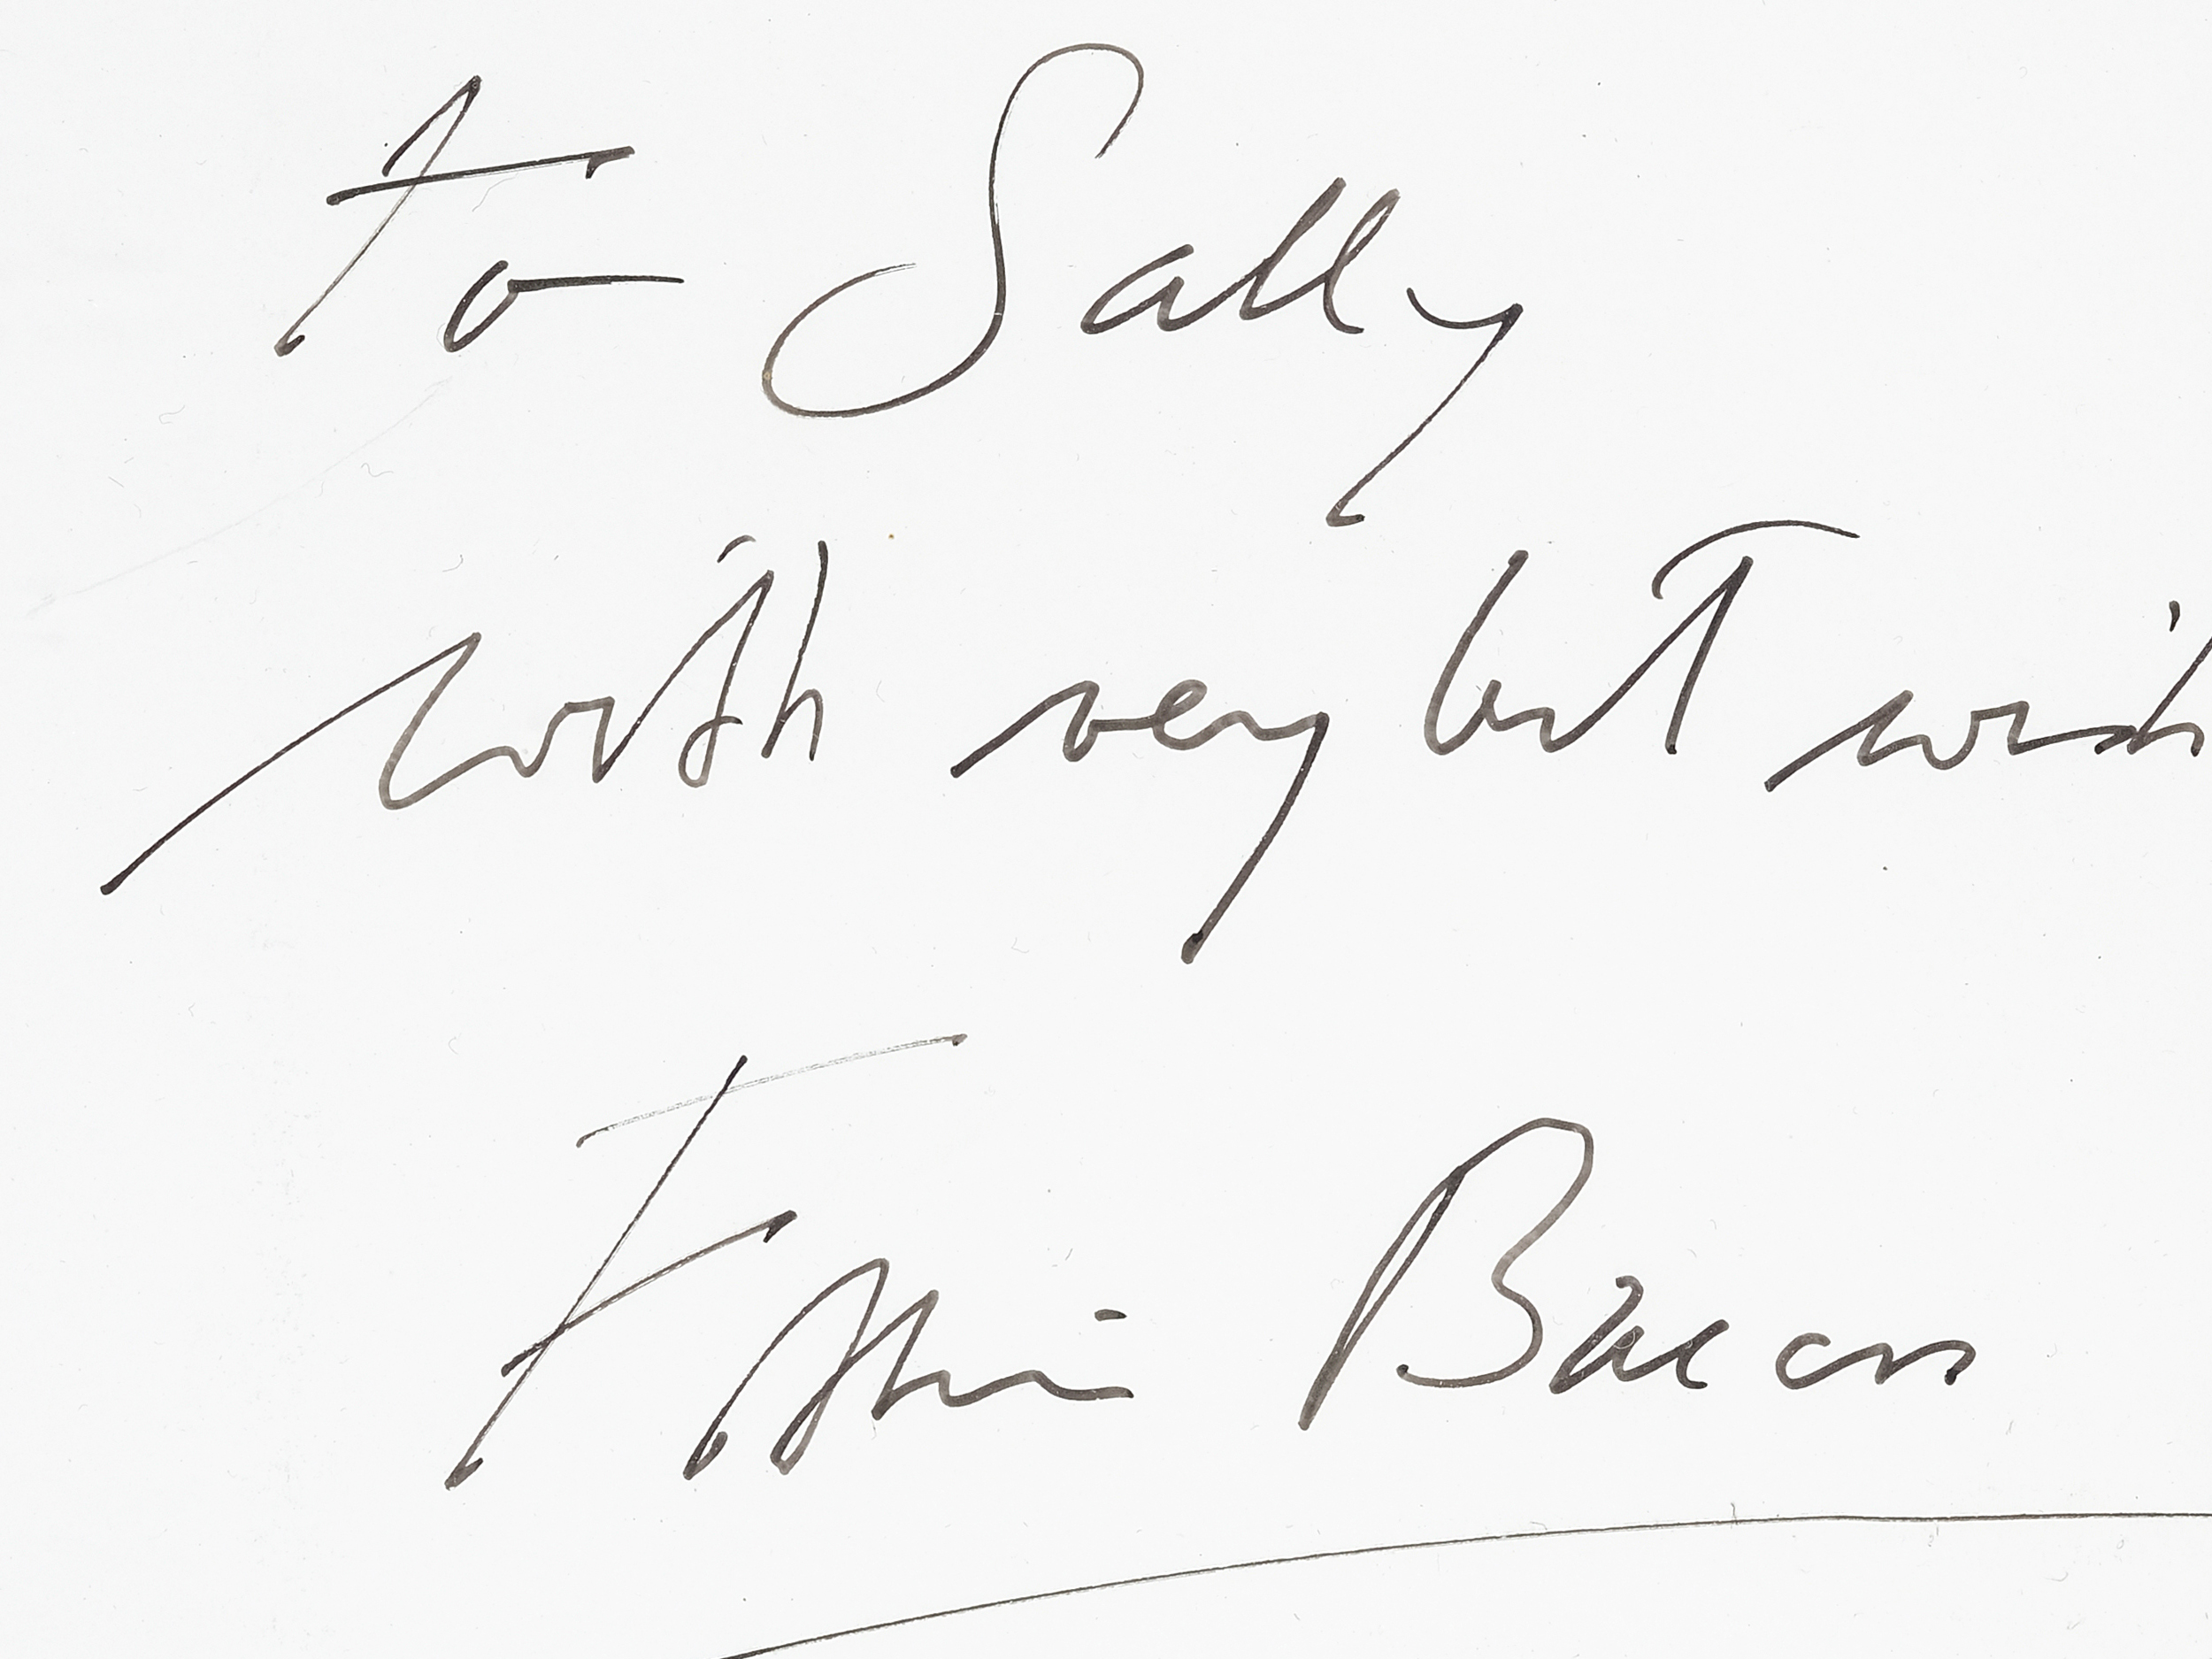 to Sally
with very best wish
Francis Bacon